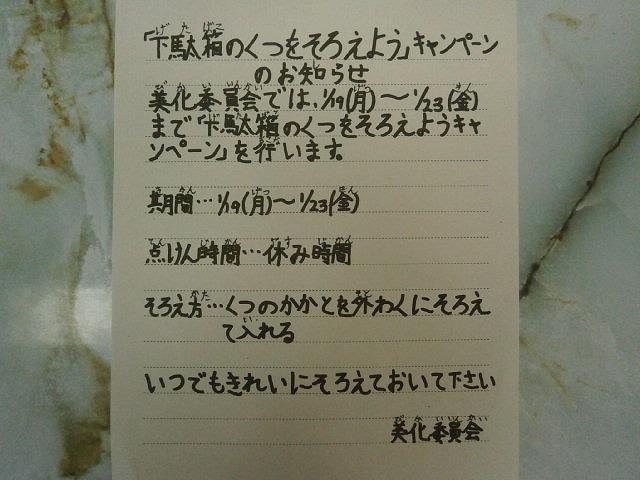 「下駄箱のくつをそろえよう」キャンペーン
のお知らせ
美化委員会では、1/19(月)～1/23(金)
まで「下駄箱のくつをそろえようキャ
ンペーン」を行います。
期間…1/19(月)～1/23(金)
点けん時間…休み時間
そろえ方…くつのかかとを外わくにそろえ
て入れる
いつでもきれいにそろえておいて下さい
美化委員会